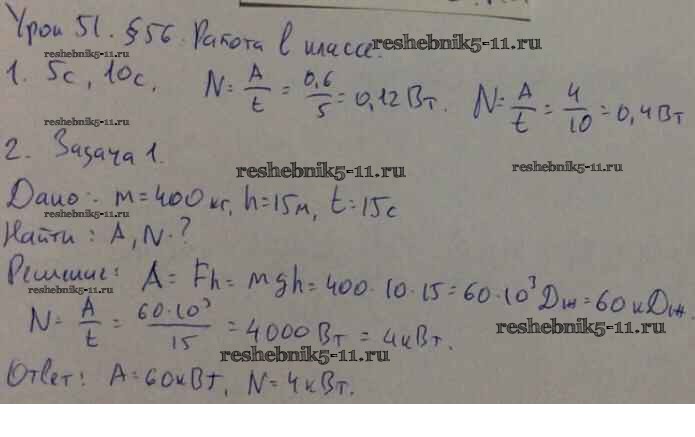 Урок 51. §56. Работа в классе.
reshebnik5-11.ru
1. 5с, 10с. N = A/t = 0,6/5 = 0,12 Вт. N = A/t = 4/10 = 0,4 Вт
reshebnik5-11.ru
reshebnik5-11.ru
2. Задача 1.
reshebnik5-11.ru
Дано: m = 400 кг, h = 15 м, t = 15 с
reshebnik5-11.ru
Найти: A, N - ?
Решение: A = Fh = mgh = 400 · 10 · 15 = 60 · 10³ Дж = 60 кДж.
reshebnik5-11.ru
N = A/t = 60 · 10³/15 = 4000 Вт = 4 кВт.
reshebnik5-11.ru
reshebnik5-11.ru
Ответ: A = 60 кВт, N = 4 кВт.